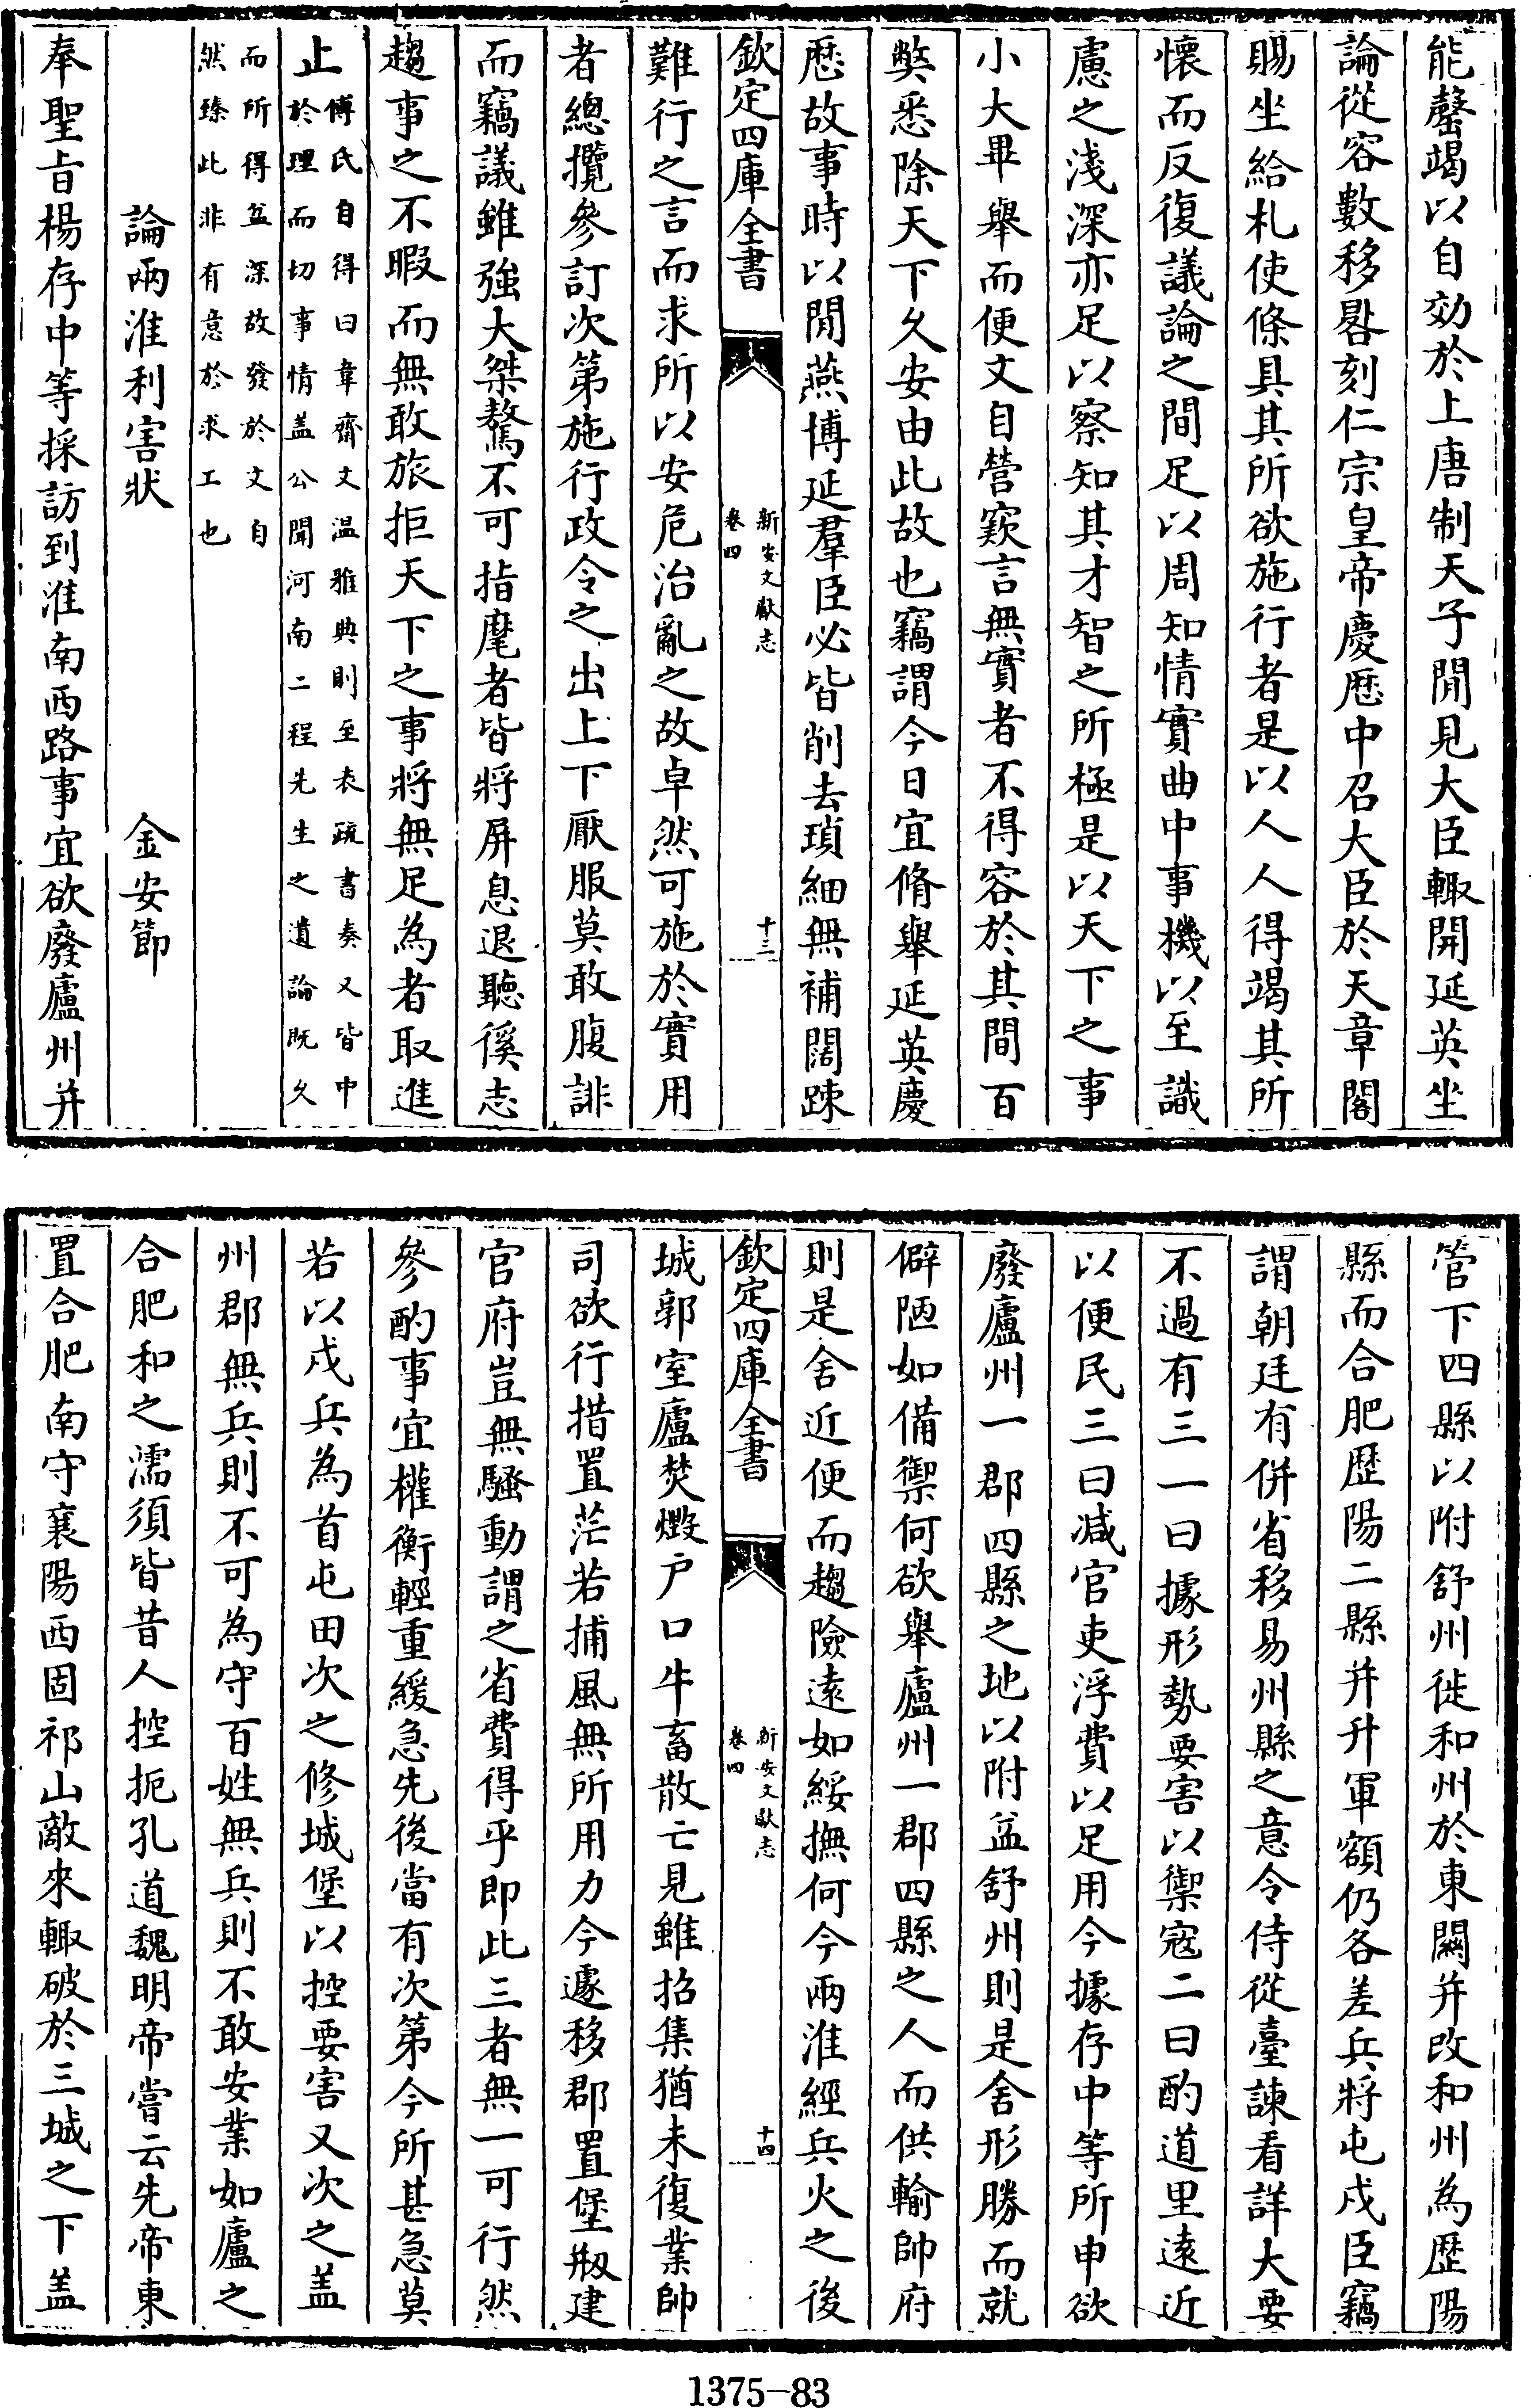 能罄竭以自効於上唐制天子閒見大臣輙開延英坐
論從容數移晷刻仁宗皇帝慶厯中召大臣於天章閣
賜坐給札使條具其所欲施行者是以人人得竭其所
懷而反復議論之間足以周知情實曲中事機以至識
慮之淺深亦足以察知其才智之所極是以天下之事
小大畢舉而便文自營窾言無實者不得容於其間百
弊悉除天下乆安由此故也竊謂今日宜脩舉延英慶
厯故事時以閒燕博延羣臣必皆削去瑣細無補闊踈
欽定四庫全書
新安文獻志
卷四
十三
難行之言而求所以安危治亂之故卓然可施於實用
者總攬參訂次第施行政令之出上下厭服莫敢腹誹
而竊議雖強大桀驁不可指麾者皆將屏息退聽徯志
趨事之不暇而無敢旅拒天下之事將無足為者取進
止
傅氏自得曰韋齋文温雅典則至表疏書奏又皆中
於理而切事情盖公聞河南二程先生之遺論既乆
而所得益深故發於文自
然臻此非有意於求工也
論兩淮利害狀
金安節
奉聖旨楊存中等採訪到淮南西路事宜欲廢廬州并
管下四縣以附舒州徙和州於東關并改和州為歴陽
縣而合肥歴陽二縣并升軍額仍各差兵將屯戍臣竊
謂朝廷有併省移易州縣之意令侍從臺諫看詳大要
不過有三一曰據形勢要害以禦寇二曰酌道里遠近
以便民三曰减官吏浮費以足用今據存中等所申欲
廢廬州一郡四縣之地以附益舒州則是舍形勝而就
僻陋如備禦何欲舉廬州一郡四縣之人而供輸帥府
則是舍近便而趨險遠如綏撫何今兩淮經兵火之後
欽定四庫全書
新安文獻志
卷四
十四
城郭室廬焚燬户口牛畜散亡見雖招集猶未復業帥
司欲行措置茫若捕風無所用力今遽移郡置堡剏建
官府豈無騷動謂之省費得乎即此三者無一可行然
參酌事宜權衡輕重緩急先後當有次第今所甚急莫
若以戍兵為首屯田次之修城堡以控要害又次之盖
州郡無兵則不可為守百姓無兵則不敢安業如廬之
合肥和之濡須皆昔人控扼孔道魏明帝嘗云先帝東
置合肥南守襄陽西固祁山敵來輙破於三城之下盖
1375-83